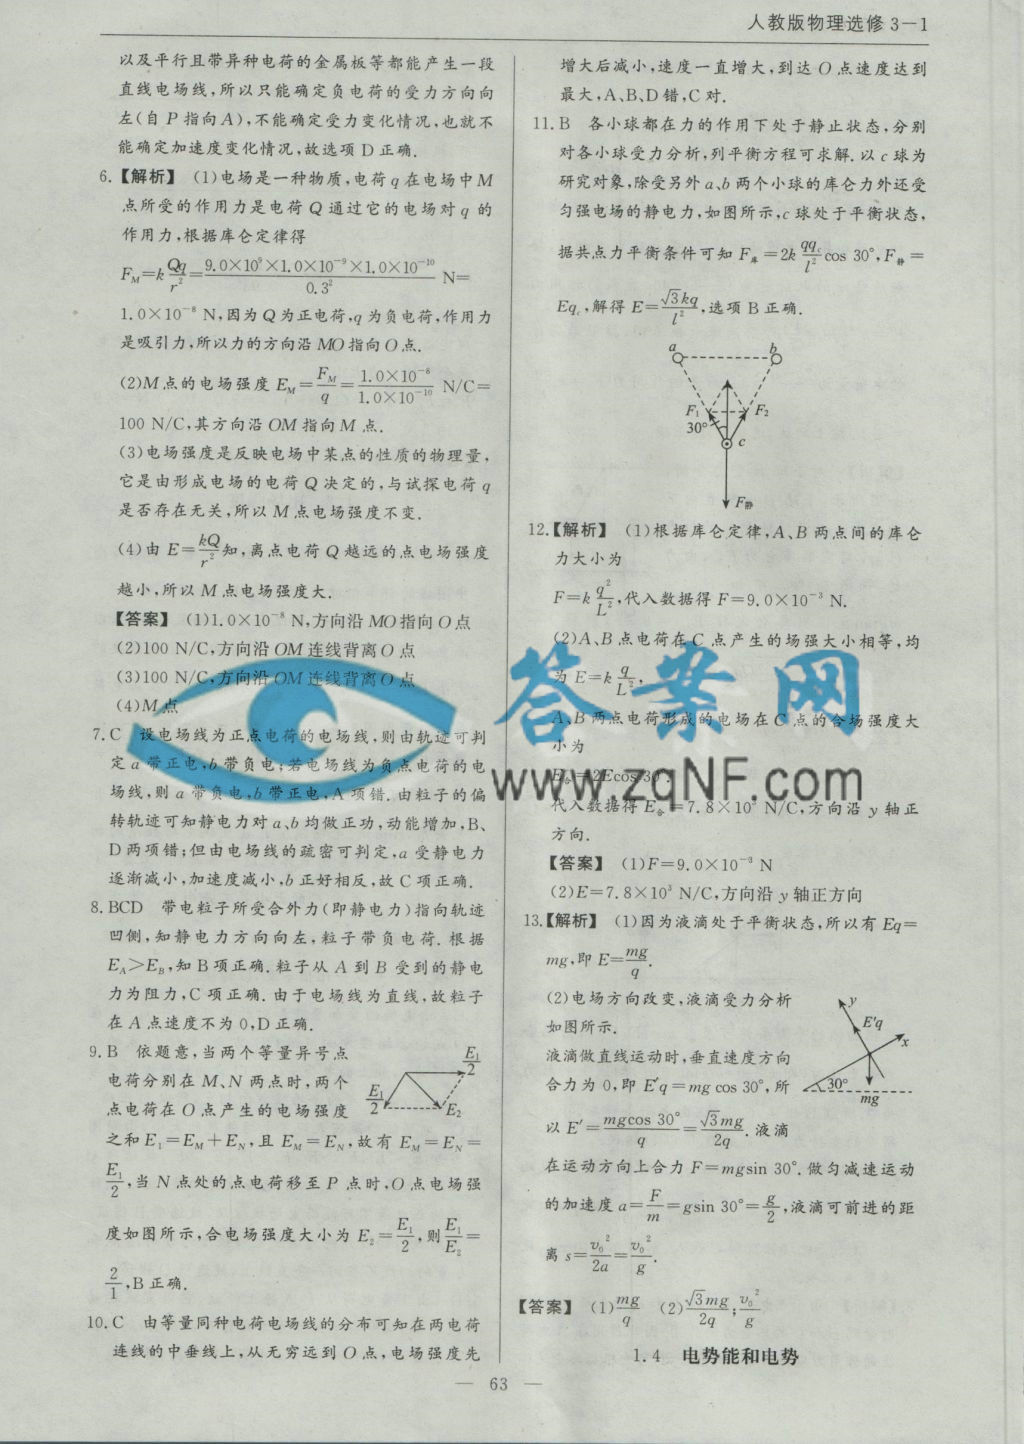 人教版物理选修3-1
以及平行且带异种电荷的金属板等都能产生一段
直线电场线,所以只能确定负电荷的受力方向向
左(自P指向A),不能确定受力变化情况,也就不
能确定加速度变化情况,故选项D正确.
6.【解析】 (1)电场是一种物质,电荷q在电场中M
点所受的作用力是电荷Q通过它的电场对q的
作用力,根据库仑定律得
F_M=k Qq/r²=9.0×10⁹×1.0×10⁻⁹×1.0×10⁻¹⁰/0.3² N=
1.0×10⁻⁸ N,因为Q为正电荷,q为负电荷,作用力
是吸引力,所以力的方向沿MO指向O点.
(2)M点的电场强度E_M=F_M/q=1.0×10⁻⁸/1.0×10⁻¹⁰ N/C=
100 N/C,其方向沿OM指向M点.
(3)电场强度是反映电场中某点的性质的物理量,
它是由形成电场的电荷Q决定的,与试探电荷q
是否存在无关,所以M点电场强度不变.
(4)由E=kQ/r²知,离点电荷Q越远的点电场强度
越小,所以M点电场强度大.
【答案】 (1)1.0×10⁻⁸ N,方向沿MO指向O点
(2)100 N/C,方向沿OM连线背离O点
(3)100 N/C,方向沿OM连线背离O点
(4)M点
7.C 设电场线为正点电荷的电场线,则由轨迹可判
定a带正电,b带负电;若电场线为负点电荷的电
场线,则a带负电,b带正电,A项错.由粒子的偏
转轨迹可知静电力对a、b均做正功,动能增加,B、
D两项错;但由电场线的疏密可判定,a受静电力
逐渐减小,加速度减小,b正好相反,故C项正确.
8.BCD 带电粒子所受合外力(即静电力)指向轨迹
凹侧,知静电力方向向左,粒子带负电荷.根据
E_A>E_B,知B项正确.粒子从A到B受到的静电
力为阻力,C项正确.由于电场线为直线,故粒子
在A点速度不为0,D正确.
9.B 依题意,当两个等量异号点
电荷分别在M、N两点时,两个
点电荷在O点产生的电场强度
E₁/2
E₁/2
E₂
之和E₁=E_M+E_N,且E_M=E_N,故有E_M=E_N=
E₁/2,当N点处的点电荷移至P点时,O点电场强
度如图所示,合电场强度大小为E₂=E₁/2,则E₁/E₂=
2/1,B正确.
10.C 由等量同种电荷电场线的分布可知在两电荷
连线的中垂线上,从无穷远到O点,电场强度先
增大后减小,速度一直增大,到达O点速度达到
最大,A、B、D错,C对.
11.B 各小球都在力的作用下处于静止状态,分别
对各小球受力分析,列平衡方程可求解.以c球为
研究对象,除受另外a、b两个小球的库仑力外还受
匀强电场的静电力,如图所示,c球处于平衡状态,
据共点力平衡条件可知F库=2k qq_c/l² cos 30°,F静=
Eq_c,解得E=√3kq/l²,选项B正确.
a
b
F₁
F₂
30°
c
F静
12.【解析】 (1)根据库仑定律,A、B两点间的库仑
力大小为
F=k q²/L²,代入数据得F=9.0×10⁻³ N.
(2)A、B点电荷在C点产生的场强大小相等,均
为E=k q/L²,
A、B两点电荷形成的电场在C点的合场强度大
小为
E合=2Ecos 30°.
代入数据得E合=7.8×10³ N/C,方向沿y轴正
方向.
【答案】 (1)F=9.0×10⁻³ N
(2)E=7.8×10³ N/C,方向沿y轴正方向
13.【解析】 (1)因为液滴处于平衡状态,所以有Eq=
mg,即E=mg/q.
(2)电场方向改变,液滴受力分析
如图所示.
液滴做直线运动时,垂直速度方向
合力为0,即E′q=mg cos 30°,所
以E′=mgcos 30°/q=√3mg/2q.液滴
y
E′q
x
30°
mg
在运动方向上合力F=mgsin 30°.做匀减速运动
的加速度a=F/m=gsin 30°=g/2,液滴可前进的距
离s=v₀²/2a=v₀²/g.
【答案】 (1)mg/q (2)√3mg/2q;v₀²/g
1.4 电势能和电势
— 63 —
答案网
www.zqNF.com